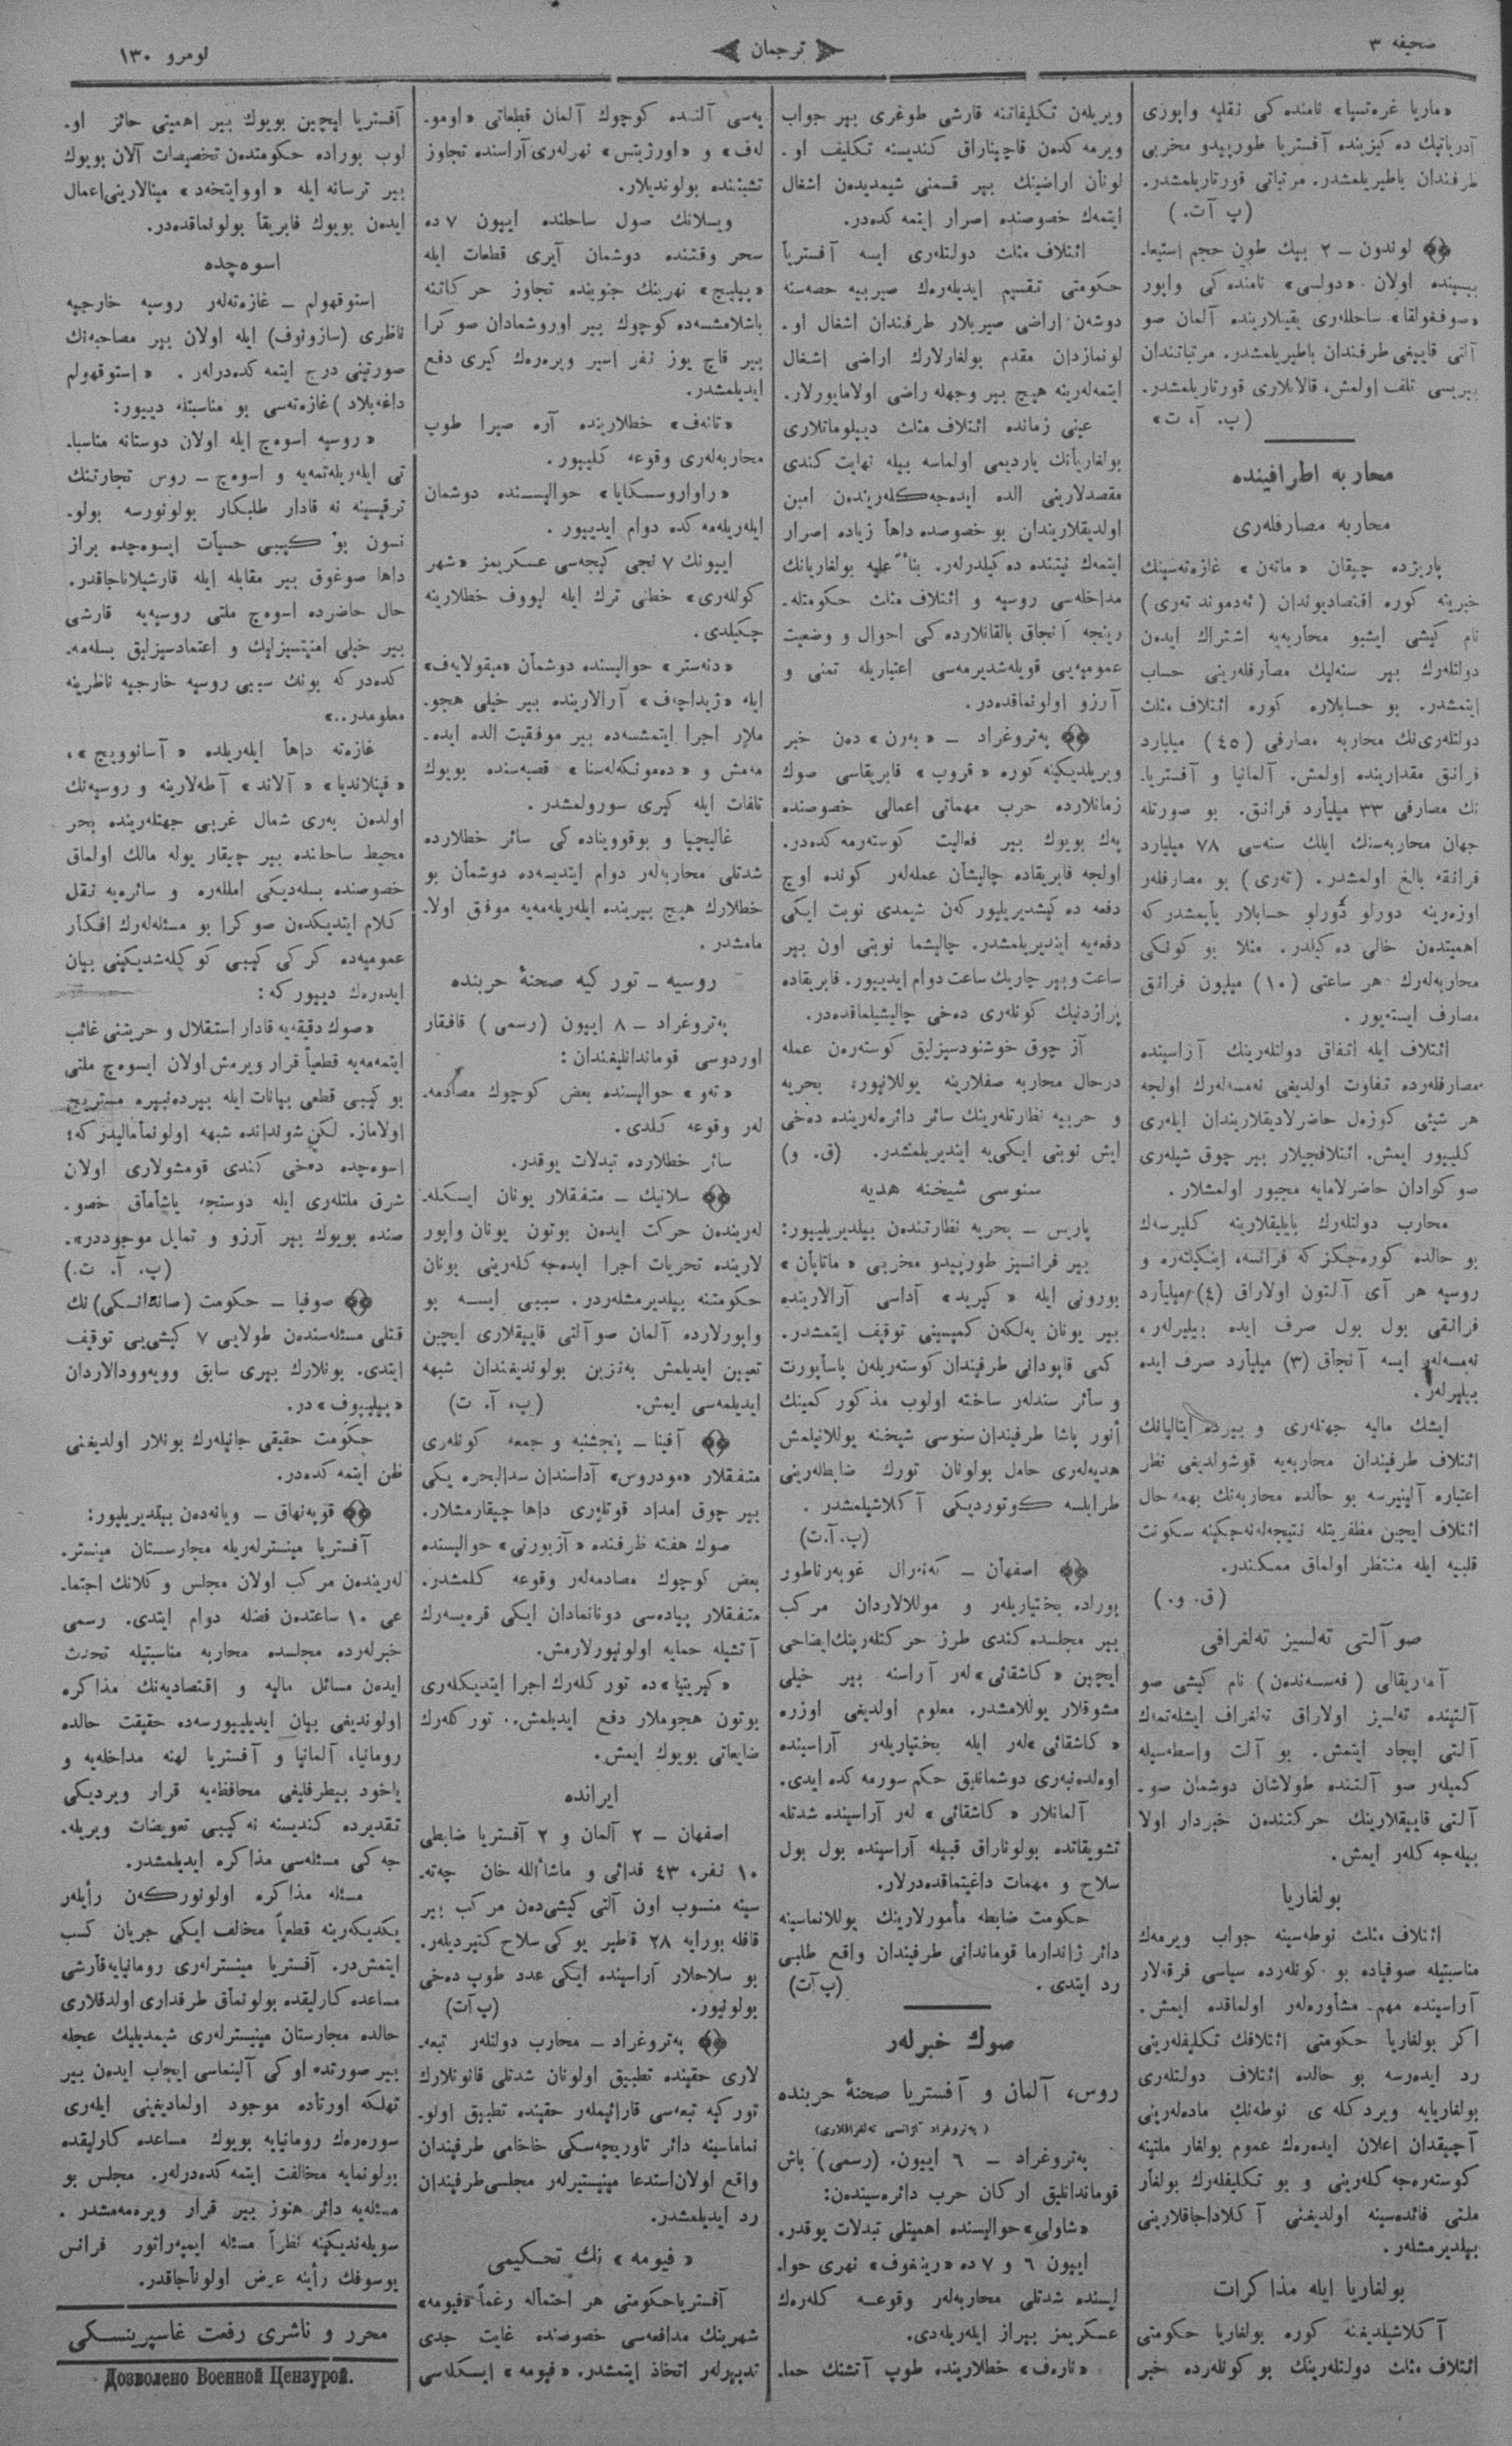 صحیفه ۳
ترجمان
نومرو ۱۳۰
«ماریا غره‌تسیا» نامنده کی نقلیه واپوری
آدریاتیك ده کیزینده آفستریا طورپیدو مخربی
طرفندان باطیریلمشدر. مرتباتی قورتاریلمشدر.
(پ آت.)
لوندون ــ ۲ بیك طون حجم استیعا-
بیسینده اولان «دولسی» نامنده کی واپور
ساحللەری یقینلارینده آلمان صو
آلتی قاییغی طرفندان باطیریلمشدر. مرتباتندان
بیریسی تلف اولمش، قالانلاری قورتاریلمشدر.
(پ. آ، ت»
محاربه اطرافینده
محاربه مصارفلەری
پاریزده چیقان «ماتەن» غازەتەسینك
خبرینه کوره اقتصادیوندان (ئەدموند تەری)
نام کیشی ایشبو محاربەیه اشتراك ایدەن
دولتلەرك بیر سنەلیك مصارفلەرینی حساب
ایتمشدر. بو حسابلاره کوره ائتلاف مثلث
دولتلەری‌نك محاربه مصارفی (٤٥) میلیارد
فرانق مقدارینده اولمش. آلمانیا و آفستریا-
نك مصارفی ۳۳ میلیارد فرانق. بو صورتله
جهان محاربەسنك ایلك سنەسی ۷۸ میلیارد
فرانقه بالغ اولمشدر. (تەری) بو مصارفلەر
اوزەرینه دورلو دورلو حسابلار یاپمشدر که
اهمیتدەن خالی دەکیلدر. مثلا بو کونکی
محاربەلەرك هر ساعتی (۱۰) میلیون فرانق
مصارف ایستەیور.
ائتلاف ایله اتفاق دولتلەرینك آراسینده
مصارفلەرده تفاوت اولدیغی نەمسەلەرك اولجه
هر شیئی کوزەل حاضرلادیقلاریندان ایلەری
کلیبور ایمش. ائتلافجیلار بیر چوق شیلەری
صوکرادان حاضرلامایه مجبور اولمشلار.
محارب دولتلەرك بایلیقلارینه کلیرسەك
بو حالده کورەجکز که فرانسه، اینکیلتەره و
روسیه هر آی آلتون اولاراق (٤) میلیارد
فرانقی بول بول صرف ایده بیلیرلەر،
نەمسەلەر ایسه آنجاق (۳) میلیارد صرف ایده
بیلیرلەر.
ایشك مالیه جهتلەری و بیرده ایتالیانك
ائتلاف طرفیندان محاربەیه قوشولدیغی نظر
اعتباره آلینیرسه بو حالده محاربەنك بهمه حال
ائتلاف ایچین مظفریتله نتیجەلەنەجکینه سکونت
قلبیه ایله منتظر اولماق ممکندر.
(ق. و.)
صو آلتی تەلسیز تەلغرافی
آمەریقالی (فەسسەندەن) نام کیشی صو
آلتینده تەلسیز اولاراق تەلغراف ایشلەتمەك
آلتی ایجاد ایتمش. بو آلت واسطەسیله
کمیلەر صو آلتنده طولاشان دوشمان صو-
آلتی قاییقلارینك حرکتندەن خبردار اولا
بیلەجەکلەر ایمش.
بولغاریا
ائتلاف مثلث نوطەسینه جواب ویرمەك
مناسبتیله صوفیاده بو کونلەرده سیاسی فرقەلار
آراسینده مهم مشاورەلەر اولماقده ایمش.
اکر بولغاریا حکومتی ائتلافك تکلیفلەرینی
رد ایدەرسه بو حالده ائتلاف دولتلەری
بولغاریایه ویردکلەی نوطەنك مادەلەرینی
آچیقدان إعلان ایدەرەك عموم بولغار ملتینه
کوستەرەجەکلەرینی و بو تکلیفلەرك بولغار
ملتی فائدەسینه اولدیغنی آکلاداجاقلارینی
بیلدیرمشلەر.
بولغاریا ایله مذاکرات
آکلاشیلدیغنه کوره بولغاریا حکومتی
ائتلاف مثلث دولتلەرینك بو کونلەرده خبر
ویریلەن تکلیفاتنه قارشی طوغری بیر جواب
ویرمەکدەن قاچیناراق کندیسنه تکلیف او-
لونان اراضینك بیر قسمنی شیمدیدەن اشغال
ایتمەك خصوصنده اصرار ایتمەکدەدر.
ائتلاف مثلث دولتلەری ایسه آفستریا
حکومتی تقسیم ایدیلەرەك صیربیه حصەسنه
دوشەن اراضی صیربلار طرفندان اشغال او-
لونمازدان مقدم بولغارلارك اراضی اشغال
ایتمەلەرینه هیچ بیر وجهله راضی اولامایورلار.
عینی زمانده ائتلاف مثلث دیپلوماتلاری
بولغاریانك یاردیمی اولماسه بیله نهایت کندی
مقصدلارینی الده ایدەجەکلەریندەن امین
اولدیقلاریندان بو خصوصده داها زیاده اصرار
ایتمەك نیتنده دەکیلدرلەر. بناءً علیه بولغاریانك
مداخلەسی روسیه و ائتلاف مثلث حکومتلە-
رینجه آنجاق بالقانلارده کی احوال و وضعیت
عمومیەیی قویلەشدیرمەسی اعتباریله تمنی و
آرزو اولونماقدەدر.
پەتروغراد ــ «بەرن» دەن خبر
ویریلدیکینه کوره «قروپ» فابریقاسی صوك
زمانلارده حرب مهماتی اعمالی خصوصنده
پەك بویوك بیر فعالیت کوستەرمەکدەدر.
اولجه فابریقاده چالیشان عملەلەر کونده اوچ
دفعه دەکیشدیریلیورکەن شیمدی نوبت ایکی
دفعەیه ایندیریلمشدر. چالیشما نوبتی اون بیر
ساعت وبیر چاریك ساعت دوام ایدیبور. فابریقاده
پرازدنیك کونلەری دەخی چالیشیلماقدەدر.
آز چوق خوشنودسیزلیق کوستەرەن عمله
درحال محاربه صفلارینه یوللانیور؛ بحریه
و حربیه نظارتلەرینك سائر دائرەلەرینده دەخی
ایش نوبتی ایکی‌یه ایندیریلمشدر. (ق. و)
سنوسی شیخنه هدیه
پاریس ــ بحریه نظارتندەن بیلدیریلیبور:
بیر فرانسیز طورپیدو مخربی «ماتاپان»
بورونی ایله «کیرید» آداسی آرالارینده
بیر یونان یەلکەن کمیسینی توقیف ایتمشدر.
کمی قاپودانی طرفیندان کوستەریلەن پاسپورت
و سائر سندلەر ساخته اولوب مذکور کمینك
أنور پاشا طرفیندان سنوسی شیخنه یوللانیلمش
هدیەلەری حامل بولونان تورك ضابطلەرینی
طرابلسه کوتوردیکی آکلاشیلمشدر.
(پ. آ.ت)
اصفهان ــ کەنەرال غوبەرناطور
بوراده بختیاریلەر و موللالاردان مرکب
بیر مجلسده کندی طرز حرکتلەرینك ایضاحی
ایچین «کاشقائی»لەر آراسنه بیر خیلی
مشوقلار یوللامشدر. معلوم اولدیغی اوزره
«کاشقائی»لەر ایله بختیاریلەر آراسینده
اوەلدەنبەری دوشمانلیق حکم سورمەکده ایدی.
آلمانلار «کاشقائی» لەر آراسینده شدتله
تشویقاتده بولوناراق قبیله آراسینده بول بول
سلاح و مهمات داغیتماقدەدرلار.
حکومت ضابطه مأمورلارینك یوللانماسینه
دائر ژاندارما قوماندانی طرفیندان واقع طلبی
رد ایتدی. (پ آت)
صوك خبرلەر
روس، آلمان و آفستریا صحنۀ حربنده
(پەتروغراد آژانسی تەلغرافلاری)
پەتروغراد ــ ٦ ایيون. (رسمی) باش
قوماندانلیق ارکان حرب دائرەسیندەن:
«شاولی» حوالیسنده اهمیتلی تبدلات یوقدر.
ایيون ٦ و ۷ ده «رینغوف» نهری حوا-
لیسنده شدتلی محاربەلەر وقوعه کلەرەك
عسکریمز بیراز ایلەریلەدی.
«نارەف» خطلارینده طوپ آتشنك حما-
یەسی آلتنده کوچوك آلمان قطعاتی «اومو-
لەف» و «اورژیتس» نهرلەری آراسنده تجاوز
تشبثنده بولوندیلار.
ویسلانك صول ساحلنده ایيون ۷ ده
سحر وقتنده دوشمان آیری قطعات ایله
«یپلیج» نهرینك جنوبنده تجاوز حرکاتنه
باشلامشسەده کوچوك بیر اوروشمادان صوکرا
بیر قاچ یوز نفر اسیر ویرەرەك کیری دفع
ایدیلمشدر.
«تانەف» خطلارینده آره صیرا طوپ
محاربەلەری وقوعه کلیپور.
«راواروسسکایا» حوالیسنده دوشمان
ایلەریلەمەکده دوام ایدیپور.
ایيونك ۷ نجی کیجەسی عسکریمز «شهر
کوللەری» خطنی ترك ایله لیووف خطلارینه
چکیلدی.
«دنەستر» حوالیسنده دوشمان «میقولایەف»
ایله «ژیداچەف» آرالارینده بیر خیلی هجو-
ملار اجرا ایتمشسەده بیر موفقیت الده ایده-
مەمش و «دەمونکەلەسنا» قصبەسنده بویوك
تلفات ایله کیری سورولمشدر.
غالیچیا و بوقووینادە کی سائر خطلارده
شدتلی محاربەلەر دوام ایتدیسەده دوشمان بو
خطلارك هیچ بیرینده ایلەریلەمەیه موفق اولا-
مامشدر.
روسیه ــ تورکیه صحنۀ حربنده
پەتروغراد ــ ۸ ایيون (رسمی) قافقار
اوردوسی قوماندانلیغندان:
«تەو» حوالیسنده بعض کوچوك مصادمه-
لەر وقوعه کلدی.
سائر خطلارده تبدلات یوقدر.
سلانیك ــ متفقلار یونان ایسکله-
لەریندەن حرکت ایدەن بوتون یونان واپور
لارینده تحریات اجرا ایدەجەکلەرینی یونان
حکومتنه بیلدیرمشلەردر. سببی ایسه بو
واپورلارده آلمان صوآلتی قاییقلاری ایچین
تعیین ایدیلمش بەنزین بولوندیغندان شبهه
ایدیلمەسی ایمش. (پ، آ. ت)
آفینا ــ پنجشنبه و جمعه کونلەری
متفقلار «مودروس» آداسندان سدالبحره یکی
بیر چوق امداد قوتلەری داها چیقارمشلار.
صوك هفته ظرفنده «آزبورنی» حوالیسنده
بعض کوچوك مصادمەلەر وقوعه کلمشدر.
متفقلار پیادەسی دونانمادان ایکی قرەیسەرك
آتشیله حمایه اولونیورلارمش.
«کیریتیا»ده تورکلەرك اجرا ایتدیکلەری
بوتون هجوملار دفع ایدیلمش. تورکلەرك
ضایعاتی بویوك ایمش.
ایرانده
اصفهان ــ ۲ آلمان و ۲ آفستریا ضابطی
۱۰ نفر، ٤۳ فدائی و ماشاءالله خان چەتە-
سینه منسوب اون آلتی کیشی‌دەن مرکب بیر
قافله بورایه ۲۸ قاطیر یوکی سلاح کتیردیلەر.
بو سلاحلار آراسینده ایکی عدد طوپ دەخی
بولونیور. (پ آت)
پەتروغراد ــ محارب دولتلەر تبعە-
لاری حقینده تطبیق اولونان شدتلی قانونلارك
تورکیه تبعەسی قارائیملەر حقینده تطبیق اولو-
نماماسینه دائر تاوریچەسکی خاخامی طرفیندان
واقع اولان استدعا مینیستیرلەر مجلسی طرفیندان
رد ایدیلمشدر.
«فیومه» نك تحکیمی
آفستریا حکومتی هر احتماله رغماً «فیومه»
شهرینك مدافعەسی خصوصنده غایت جدی
تدبیرلەر اتخاذ ایتمشدر. «فیومه» ایسکلەسی
آفستریا ایچین بویوك بیر اهمیتی حائز او-
لوب بوراده حکومتدەن تخصیصات آلان بویوك
بیر ترسانه ایله «اووایتخەد» مینالارینی اعمال
ایدەن بویوك فابریقا بولونماقدەدر.
اسوەچده
استوقهولم ــ غازەتەلەر روسیه خارجیه
ناظری (سازونوف) ایله اولان بیر مصاحبەنك
صورتینی درج ایتمەکدەدرلەر. «استوقهولم
داغەبلاد) غازەتەسی بو مناسبتله دیبور:
«روسیه اسوەچ ایله اولان دوستانه مناسبا-
تی ایلەریلەتمەیه و اسوەچ ــ روس تجارتنك
ترقیسینه نه قادار طلبکار بولونورسه بولو-
نسون بو کیبی حسیات ایسوەچده براز
داها صوغوق بیر مقابله ایله قارشیلاناجاقدر.
حال حاضرده اسوەچ ملتی روسیەیه قارشی
بیر خیلی امنیتسیزلیك و اعتمادسیزلیق بسلەمە-
کدەدر که بونك سببی روسیه خارجیه ناظرینه
معلومدر..»
غازەته داها ایلەریلده «آسانوویچ»،
«فینلاندیا» «آلاند» آطەلارینه و روسیەنك
اولدەن بەری شمال غربی جهتلەرینده بحر
محیط ساحلنده بیر چیقار یوله مالك اولماق
خصوصنده بسلەدیکی امللەره و سائرەیه نقل
کلام ایتدیکدەن صوکرا بو مسئلەلەرك افکار
عمومیەده کرکی کیبی کوکلەشدیکینی بیان
ایدەرەك دیبور که:
«صوك دقیقەیه قادار استقلال و حریتنی غائب
ایتمەمەیه قطعیاً قرار ویرمش اولان ایسوەچ ملتی
بو کیبی قطعی بیانات ایله بیردەنبیره مستریح
اولاماز. لکن شونداده شبهه اولونمامالیدر که؛
اسوەچده دەخی کندی قومشولاری اولان
شرق ملتلەری ایله دوستجه یاشاماق خصو-
صنده بویوك بیر آرزو و تمایل موجوددر».
(پ. آ. ت.)
صوفیا ــ حکومت (صانەانسکی) نك
قتلی مسئلەسندەن طولایی ۷ کیشی‌یی توقیف
ایتدی. بونلارك بیری سابق وویەوودالاردان
«بیلیپوف» در.
حکومت حقیقی جانیلەرك بونلار اولدیغنی
ظن ایتمەکدەدر.
قوپەنهاق ــ ویانەدەن بیلدیریلیور:
آفستریا مینسترلەریله مجارستان مینستر-
لەریندەن مرکب اولان مجلس وکلانك اجتما-
عی ۱۰ ساعتدەن فضله دوام ایتدی. رسمی
خبرلەرده مجلسده محاربه مناسبتیله تحدث
ایدەن مسائل مالیه و اقتصادیەنك مذاکره
اولوندیغی بیان ایدیلیبورسەده حقیقت حالده
رومانیا، آلمانیا و آفستریا لهنه مداخلەیه و
یاخود بیطرفلیغی محافظەیه قرار ویردیکی
تقدیرده کندیسنه نەکیبی تعویضات ویریلە-
جەکی مسئلەسی مذاکره ایدیلمشدر.
مسئله مذاکره اولونورکەن رأیلەر
یکدیکەرینه قطعیاً مخالف ایکی جریان کسب
ایتمش‌در. آفستریا مینسترلەری رومانیایه قارشی
مساعدەکارلیقده بولونماق طرفداری اولدقلاری
حالده مجارستان مینیسترلەری شیمدیلیك عجله
بیر صورتده اوکی آلینماسی ایجاب ایدەن بیر
تهلکه اورتاده موجود اولمادیغینی ایلەری
سورەرەك رومانیایه بویوك مساعدەکارلیقده
بولونمایه مخالفت ایتمەکدەدرلەر. مجلس بو
مسئلەیه دائر هنوز بیر قرار ویرەمەمشدر.
سویلەندیکینه نظراً مسئله ایمپەراتور فرانس
یوسوفك رأینه عرض اولوناجاقدر.
محرر و ناشری رفعت غاسپرینسکی
Дозволено Военной Цензурой.